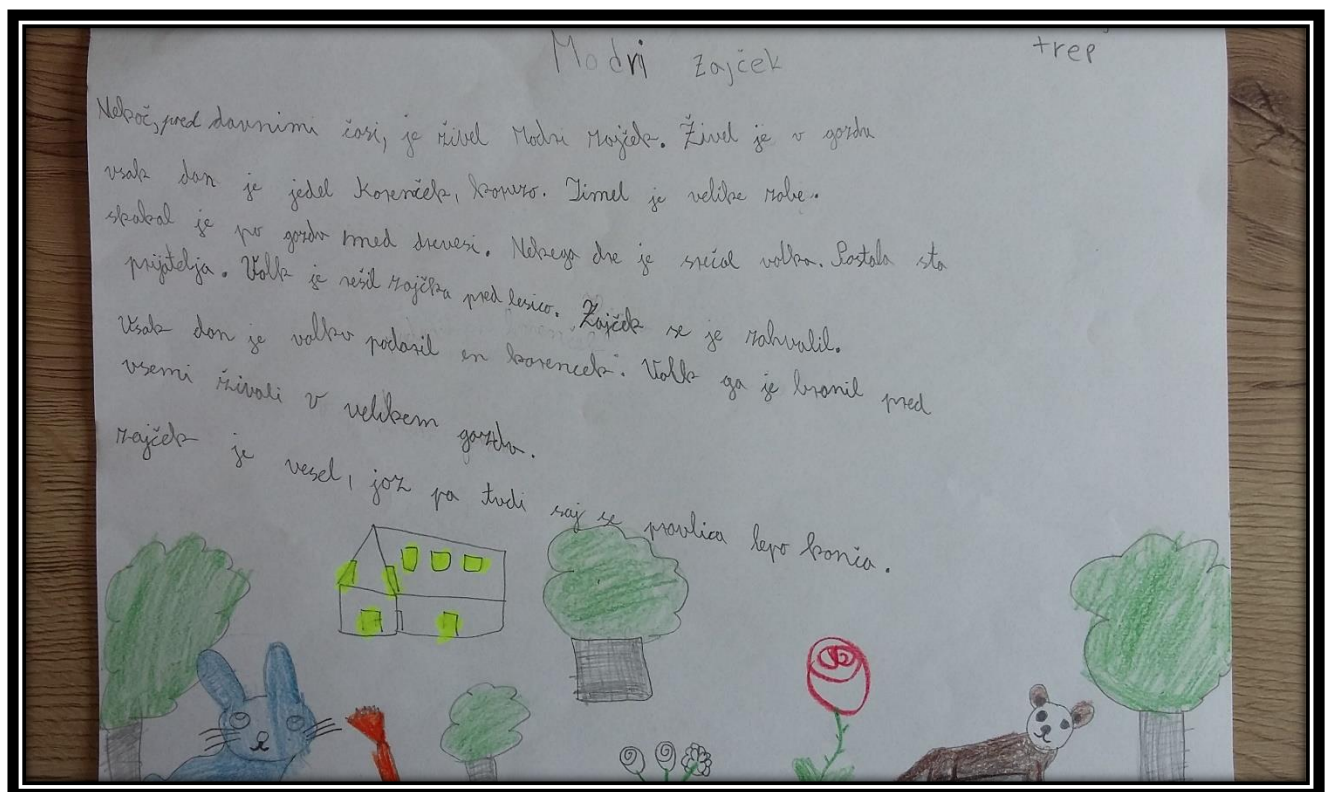 Modri zajček
trep
Nekoč, pred davnimi časi, je živel Modri zajček. Živel je v gozdu
vsak dan je jedel Korenček, koruzo. Jimel je velike zobe.
skakal je po gozdu med drevesi. Nekega dne je srečal volka. Postala sta
prijatelja. Volk je rešil zajčka pred lesico. Zajček se je zahvalil.
Vsak dan je volku podaril en korencek. Volk ga je branil pred
vsemi živali v velikem gozdu.
zajček je vesel, jaz pa tudi saj se pravlica lepo konča.